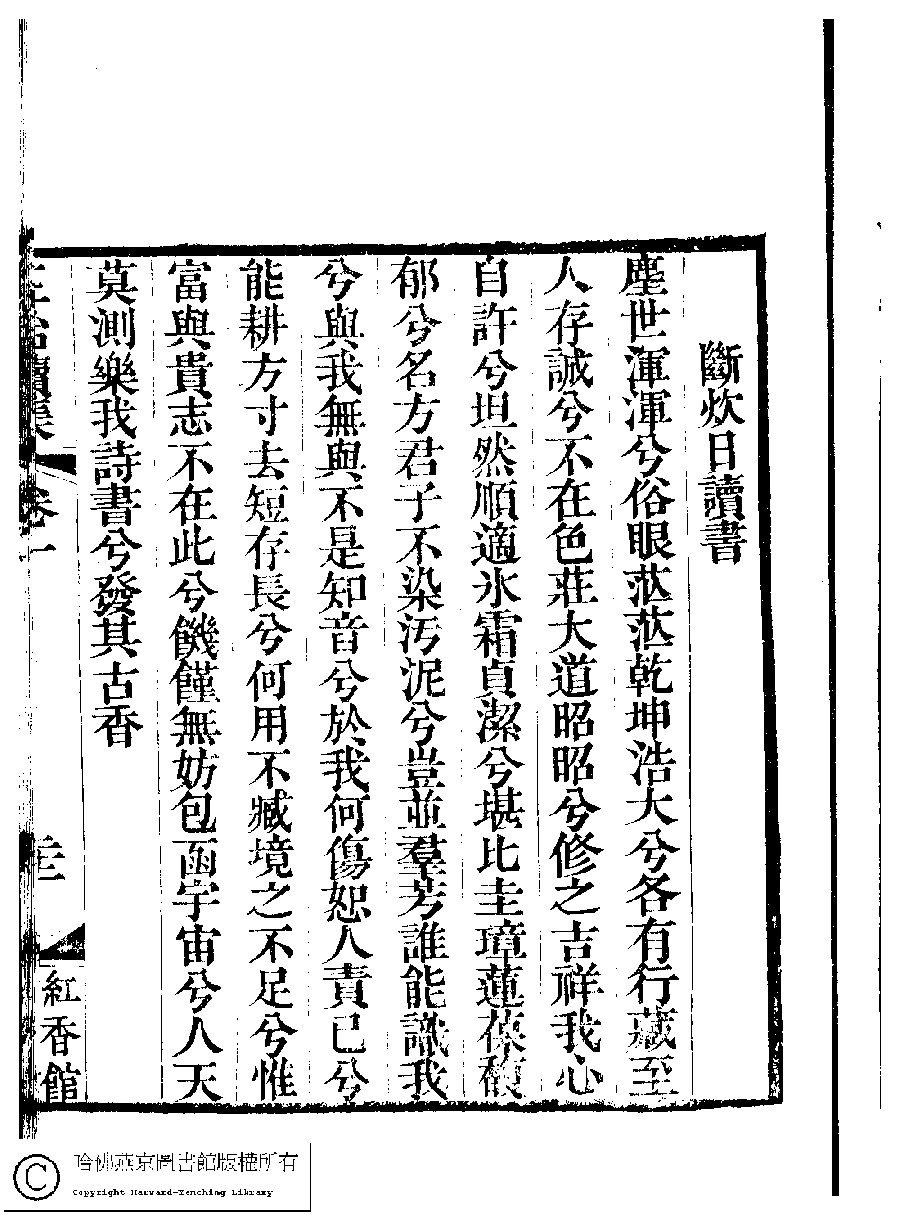 斷炊日讀書
塵世渾渾兮俗眼茫茫乾坤浩大兮各有行藏至
人存誠兮不在色莊大道昭昭兮修之吉祥我心
自許兮坦然順適氷霜貞潔兮堪比圭璋蓮葆馥
郁兮名方君子不染汚泥兮豈並羣芳誰能識我
兮與我無與不是知音兮於我何傷恕人責已兮
能耕方寸去短存長兮何用不臧境之不足兮惟
富與貴志不在此兮饑饉無妨包函宇宙兮人天
莫測樂我詩書兮發其古香
卷一
紅香館
哈佛燕京圖書館版權所有
Copyright Harvard-Yenching Library